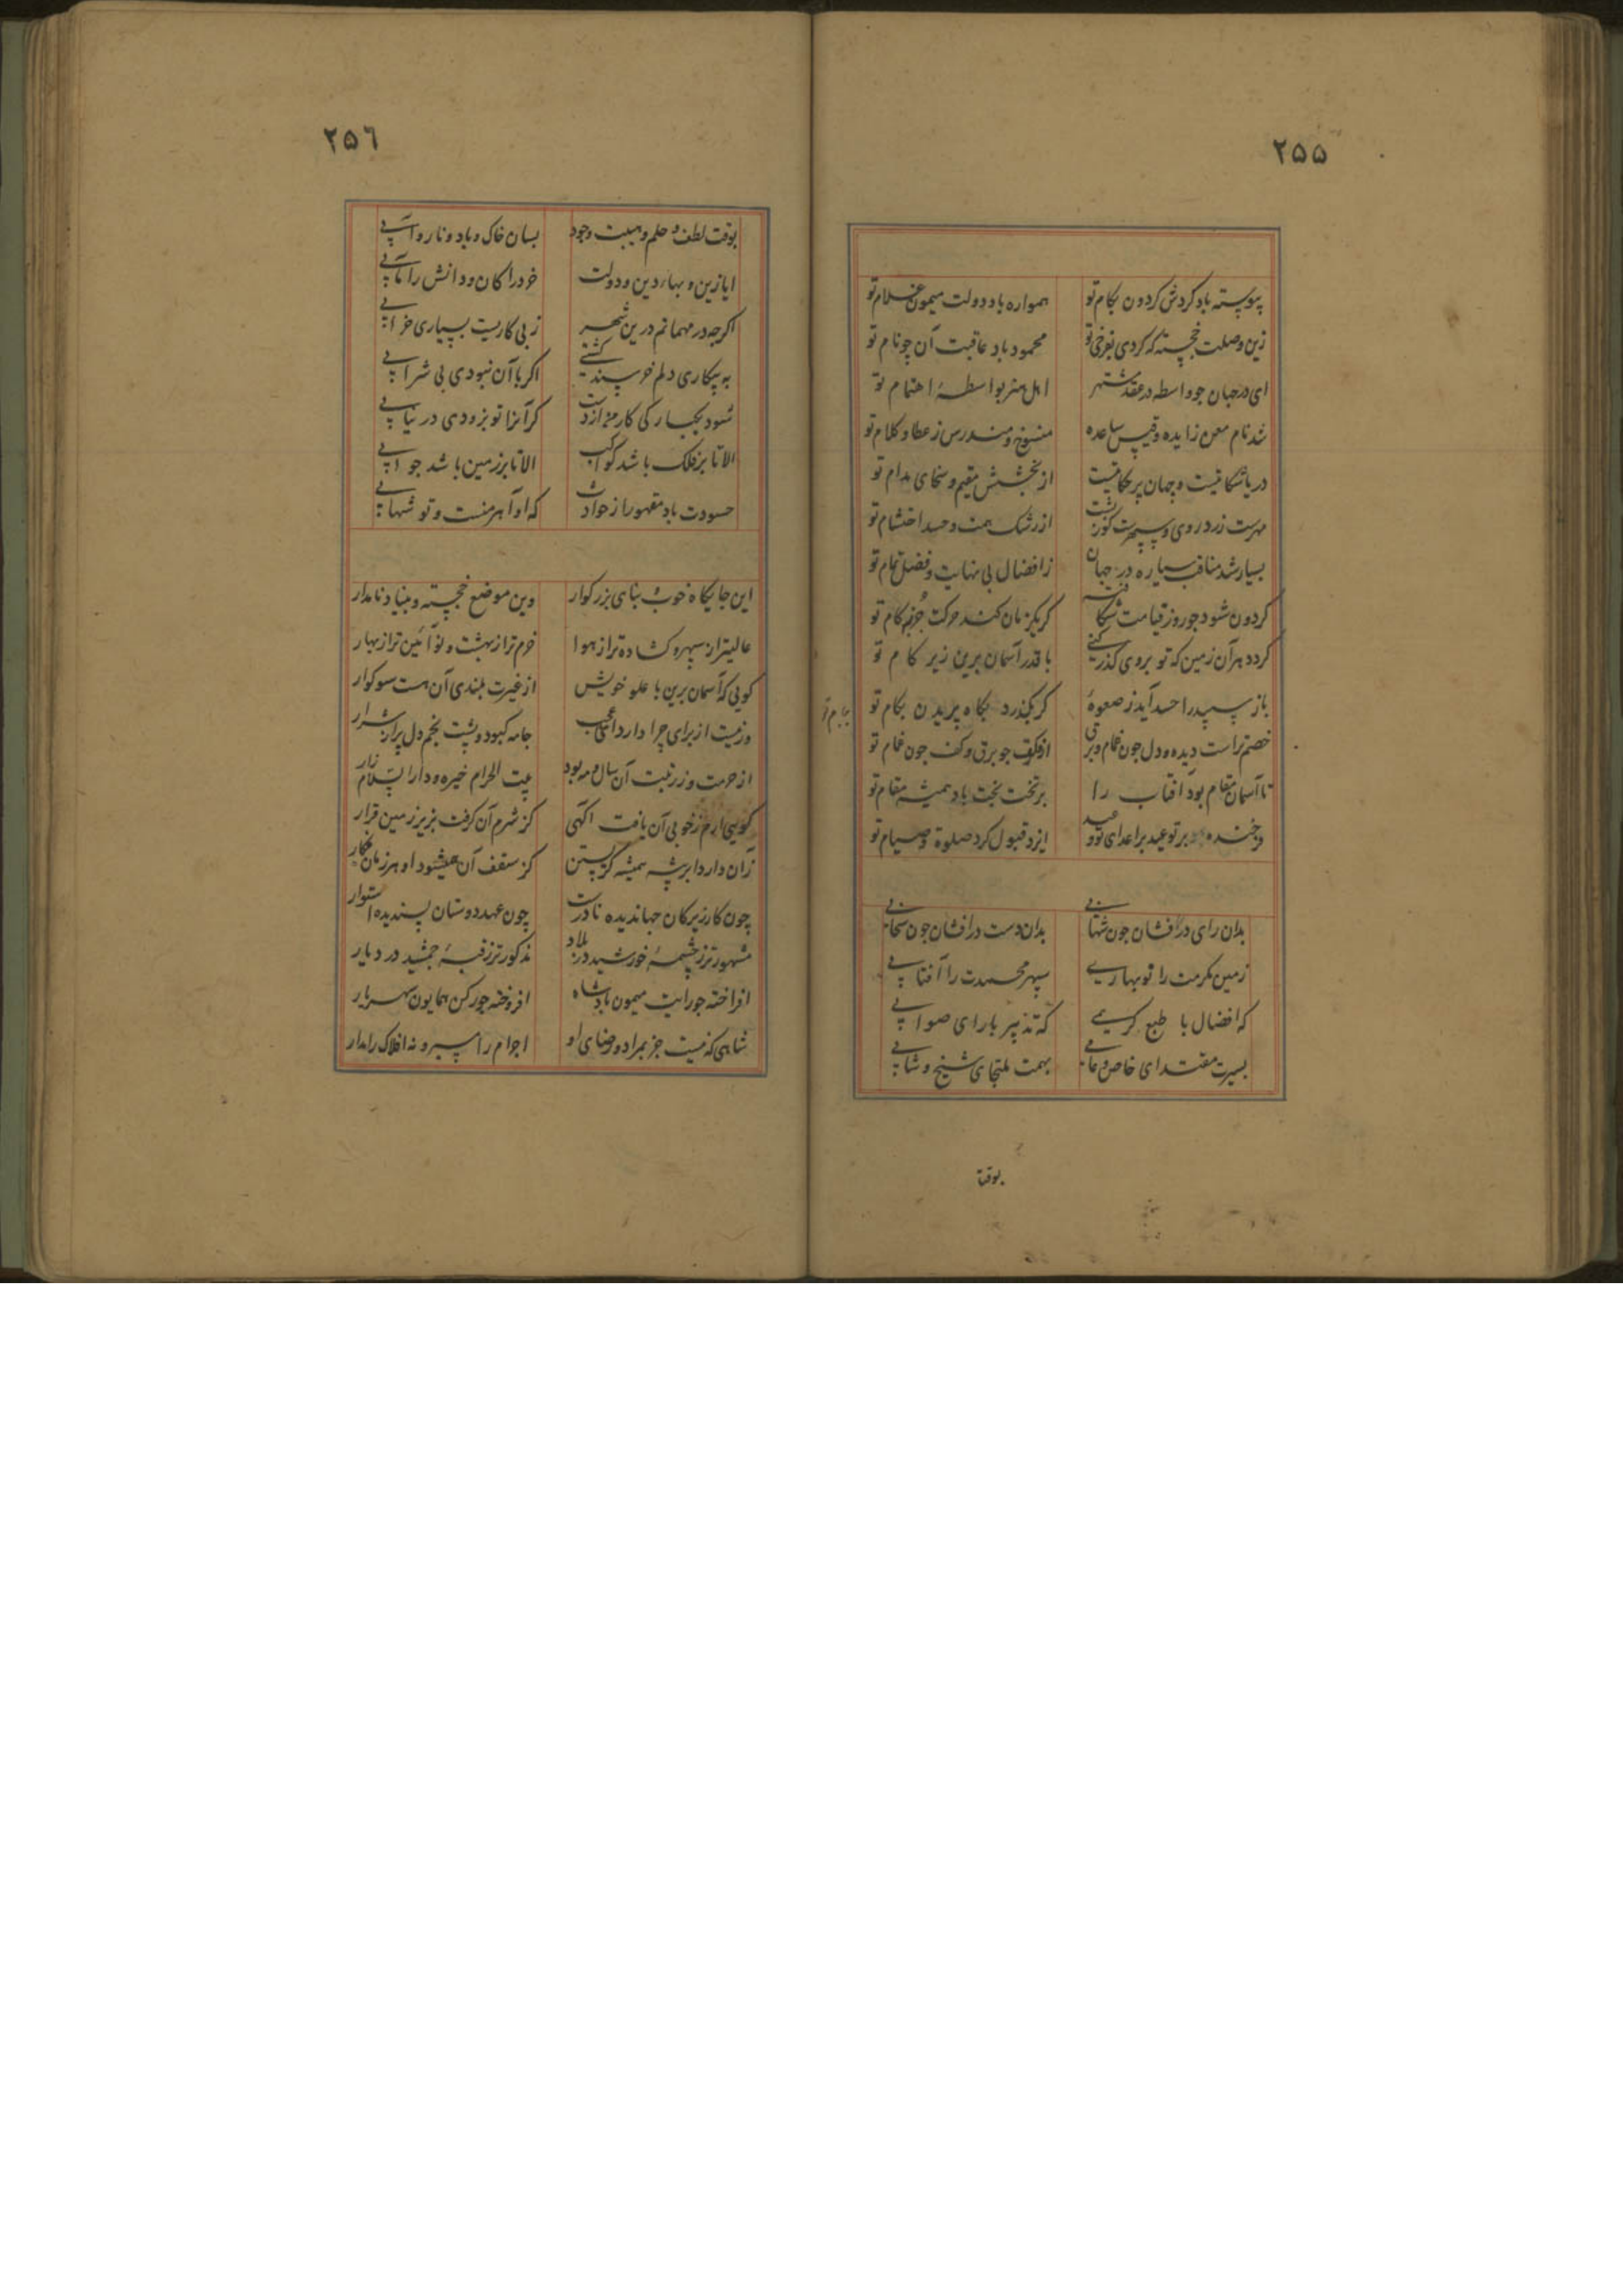 ٢٥٥
پیوسته باد کردش کردون بکام تو همواره باد دولت میمون غلام تو
زین وصلت خجسته که کردی بفرخی تو محمود باد عاقبت آن چو نام تو
ای در جهان جو واسطه در عقد مشتهر اهل هنر بواسطهٔ اهتمام تو
شد نام معن زایده و قیس ساعده منسوخ و مندرس ز عطا و کلام تو
از بخشش مقیم و سخای مدام تو
از رشک همت و حسد احتشام تو
بسیار شد مناقب سیاره در جهان ز افضال بی نهایت و فضل تمام تو
کردون شود جو روز قیامت شکافته کر یکزمان کند حرکت جز بکام تو
کردد هر آن زمین که تو بر وی کذر کنی با قدر آسمان برین زیر کام تو
باز سپید را حسد آید ز صعوهٔ کر بکذرد بکاه پریدن بکام تو
خصم تراست دیده و دل جون غمام و برق جو برق و کف جون غمام تو
تا آسمان مقام بود آفتاب را بر تخت بخت باد همیشه مقام تو
فرخنده بر تو عید بر اعدای تو وعید ایزد قبول کرد صلوة و صیام تو
بدان رای درافشان جون شهابی بدان دست درافشان جون سحابی
زمین مکرمت را نوبهاری سپهر محمدت را آفتابی
که افضال با طبع کریمی که تدبیر با رای صوابی
بسیرت مقتدای خاص و عامی بهمت ملتجای شیخ و شابی
بوقت
٢٥٦
بوقت لطف و حلم و هیبت وجود بسان خاک و باد و نار و آبی
ایا زین و بهاء دین و دولت خرد را کان و دانش را مآبی
اکرچه در مهمانم درین شهر ز بی کاریست بسیاری خرابی
به بیکاری دلم خرسند کشتی اکر با آن نبودی بی شرابی
شود یکبارکی کار من از دست کر آنرا تو بزودی در نیابی
الا تا بر فلک باشد کواکب الا تا بر زمین باشد جوابی
حسودت باد مقهور از حوادث که او آهرمنست و تو شهابی
این جایکاه خوب و بنای بزرکوار وین موضع خجسته و بنیاد نامدار
عالیتر از سپهر و کشاده تر از هوا خرم تر از بهشت و نوآئین تر از بهار
کویی که آسمان برین با علو خویش از غیرت بلندی آن هست سوکوار
ورنیست از برای چرا دارد ای عجب جامه کبود و پشت بخم دل پر از شرار
از حرمت و ز رتبت آن سال و مه بود بیت الحرام خیره و دار السلام زار
کویی ارم ز خوبی آن یافت اکهی کز شرم آن کرفت بزیر زمین قرار
زآن دارد ابر پیشه همیشه کریستن کز سقف آن همیشود او هر زمان فکار
چون کار زیرکان جهاندیده نادرست چون عهد دوستان پسندیده استوار
مشهورتر ز چشمهٔ خورشید در بلاد مذکورتر ز قبهٔ جمشید در دیار
افراخته جو رایت میمون بادشاه افروخته جو رکن همایون شهریار
شاهی که نیست جز بمراد و رضای او اجرام را مسیر و نه افلاک را مدار